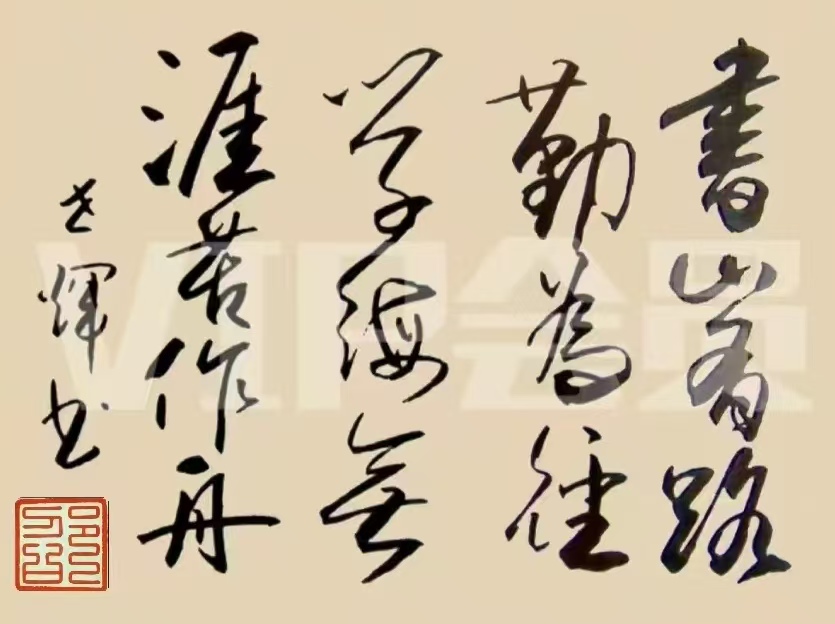 書山有路
勤為徑
学海無
涯苦作舟
志輝书
VIP会员